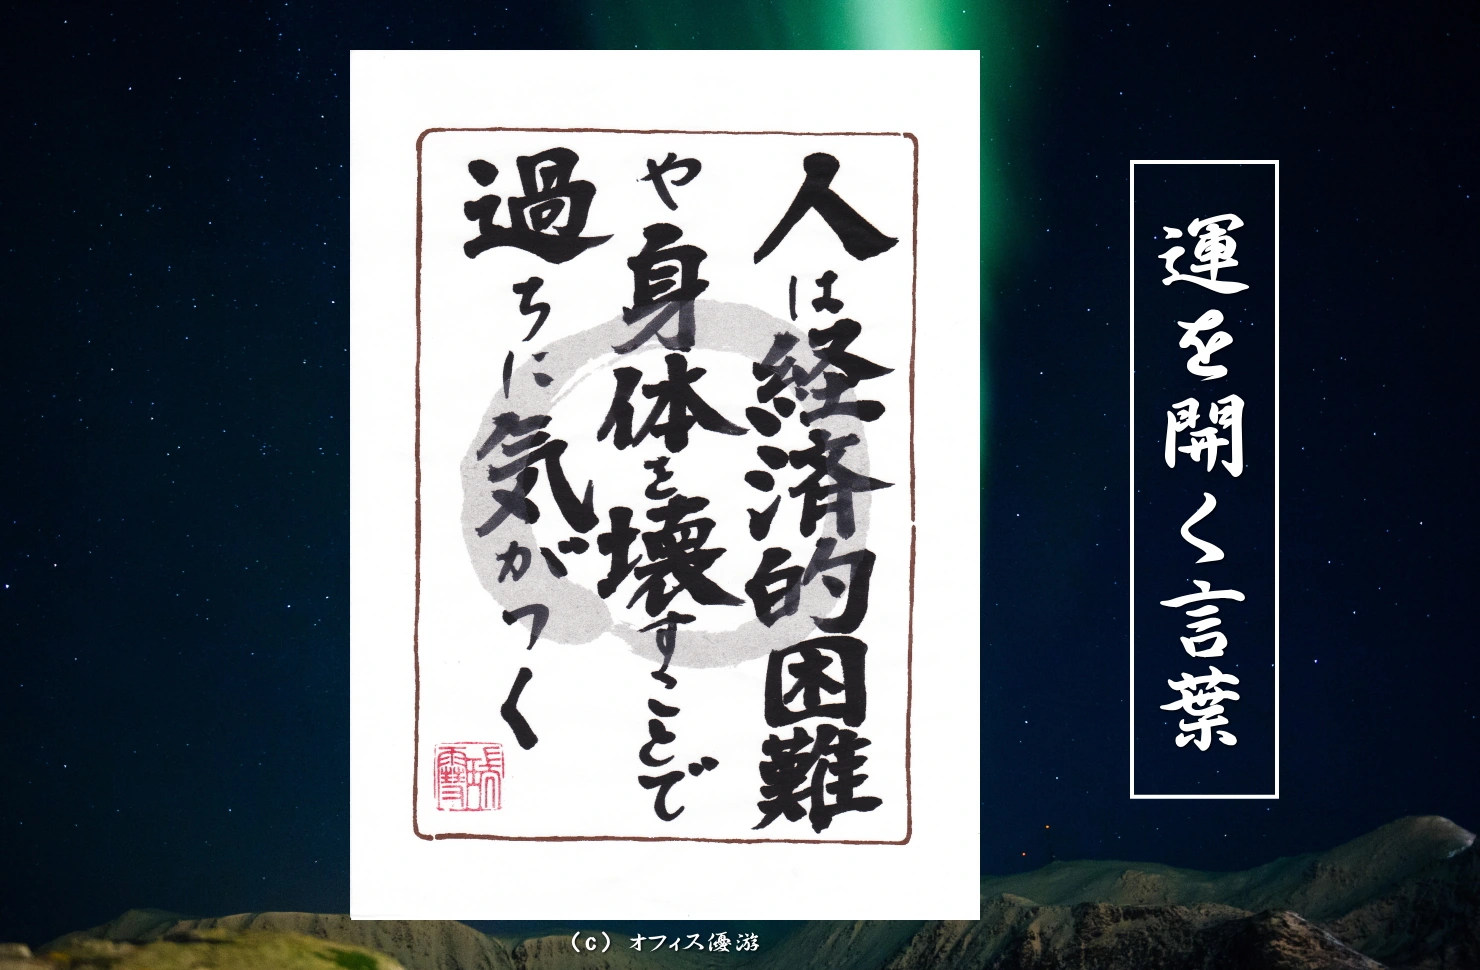 運を開く言葉
人は経済的困難
や身体を壊すことで
過ちに気がつく
(c) オフィス優游